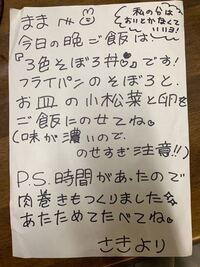 ままへ
私の分は
おいとかなくて
いいヨ!
今日の晩ご飯は〜
『3色そぼろ丼』です!
フライパンのそぼろと、
お皿の小松菜と卵を
ご飯にのせてね。
(味が濃いので、
のせすぎ注意!!)
P.S. 時間があったので
肉巻きもつくりました
あたためてたべてね。
さきより